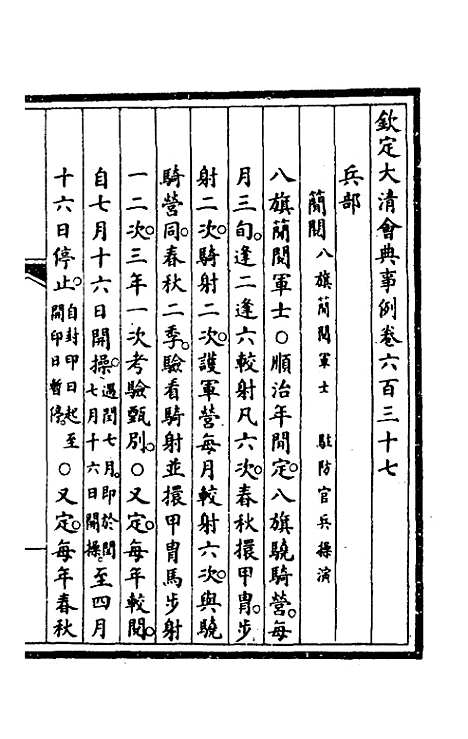 欽定大清會典事例卷六百三十七
兵部
簡閱 八旗簡閱軍士 駐防官兵操演
八旗簡閱軍士○順治年閒定。八旗驍騎營。每
月三旬。逢二逢六較射。凡六次。春秋擐甲冑。步
射二次。騎射二次。護軍營每月較射六次。與驍
騎營同。春秋二季。驗看騎射並擐甲冑馬步射
一二次。三年一次考驗甄別。○又定。每年較閱。
自七月十六日開操。遇閏七月。即於閏七月十六日開操。至四月
十六日停止。自封印日起至開印日暫停。○又定。每年春秋